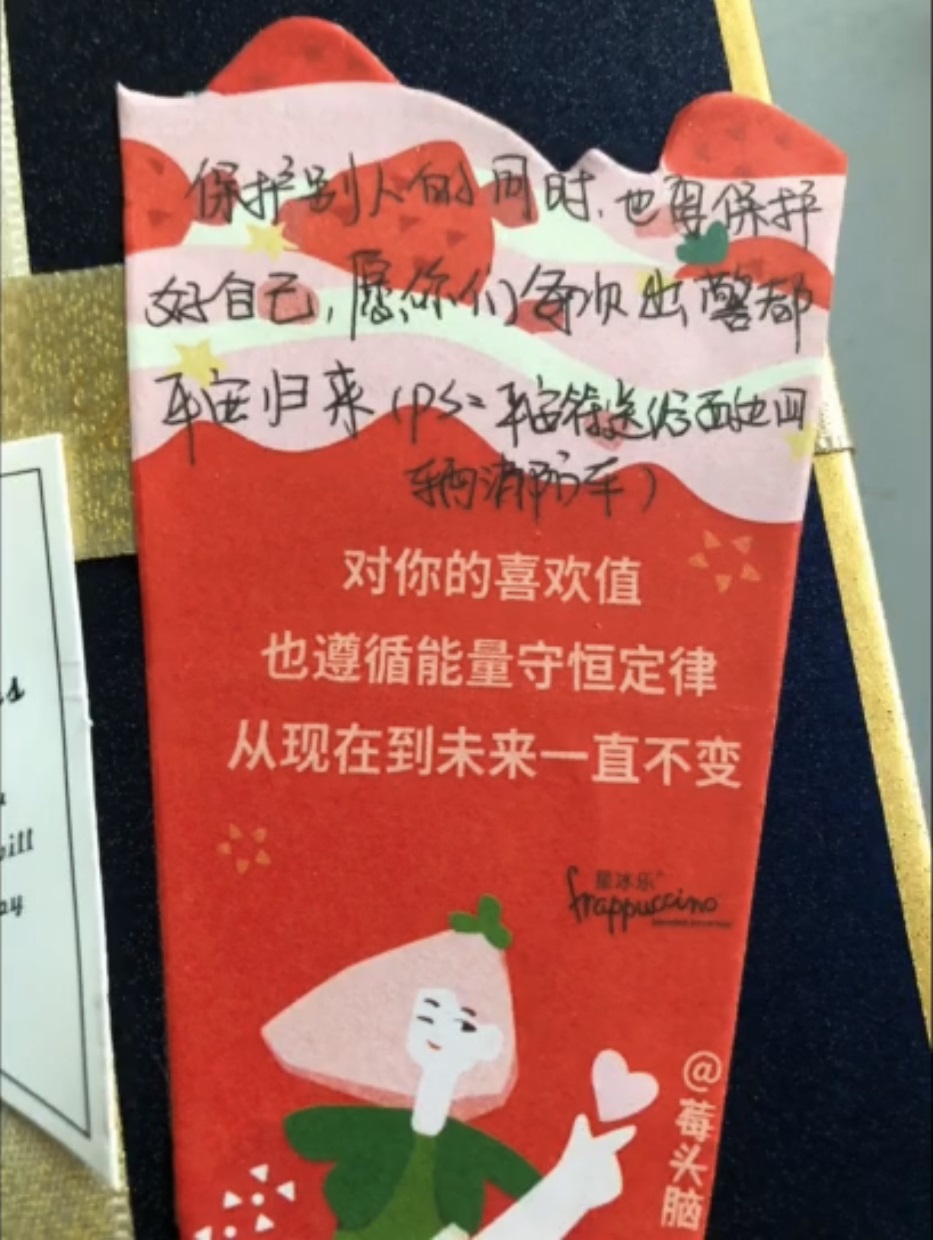 保护别人的同时,也要保护
好自己,愿你们每次出警都
平安归来(PS:平安符送给西边四
辆消防车)
对你的喜欢值
也遵循能量守恒定律
从现在到未来一直不变
星冰乐
frappuccino
@莓头脑
ill